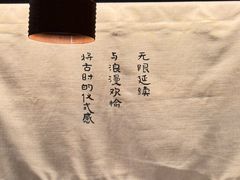 将古时的仪式感
与浪漫欢愉
无限延续